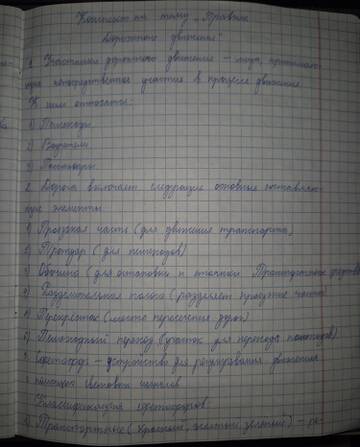 Конспект на тему „Правила
дорожного движения"
1. Участники дорожного движения – лица, принимаю-
щие непосредственное участие в процессе движения.
К ним относятся:
1) Пешеходы
2) Водители
3) Пассажиры
2. Дорога включает следующие основные составляю-
щие элементы
1) Проезжая часть (для движения транспорта)
2) Тротуар (для пешеходов)
3) Обочина (для остановки и стоянки Транспортных средств)
4) Разделительная полоса (разделяет проезжие части)
5) Перекресток (место пересечения дорог)
6) Пешеходный переход (участок для перехода пешеходов)
Светофор – устройство для регулирования движения
помощью световых сигналов
Классификация светофоров
1) Транспортные (красный, желтый, зеленый) – ре-